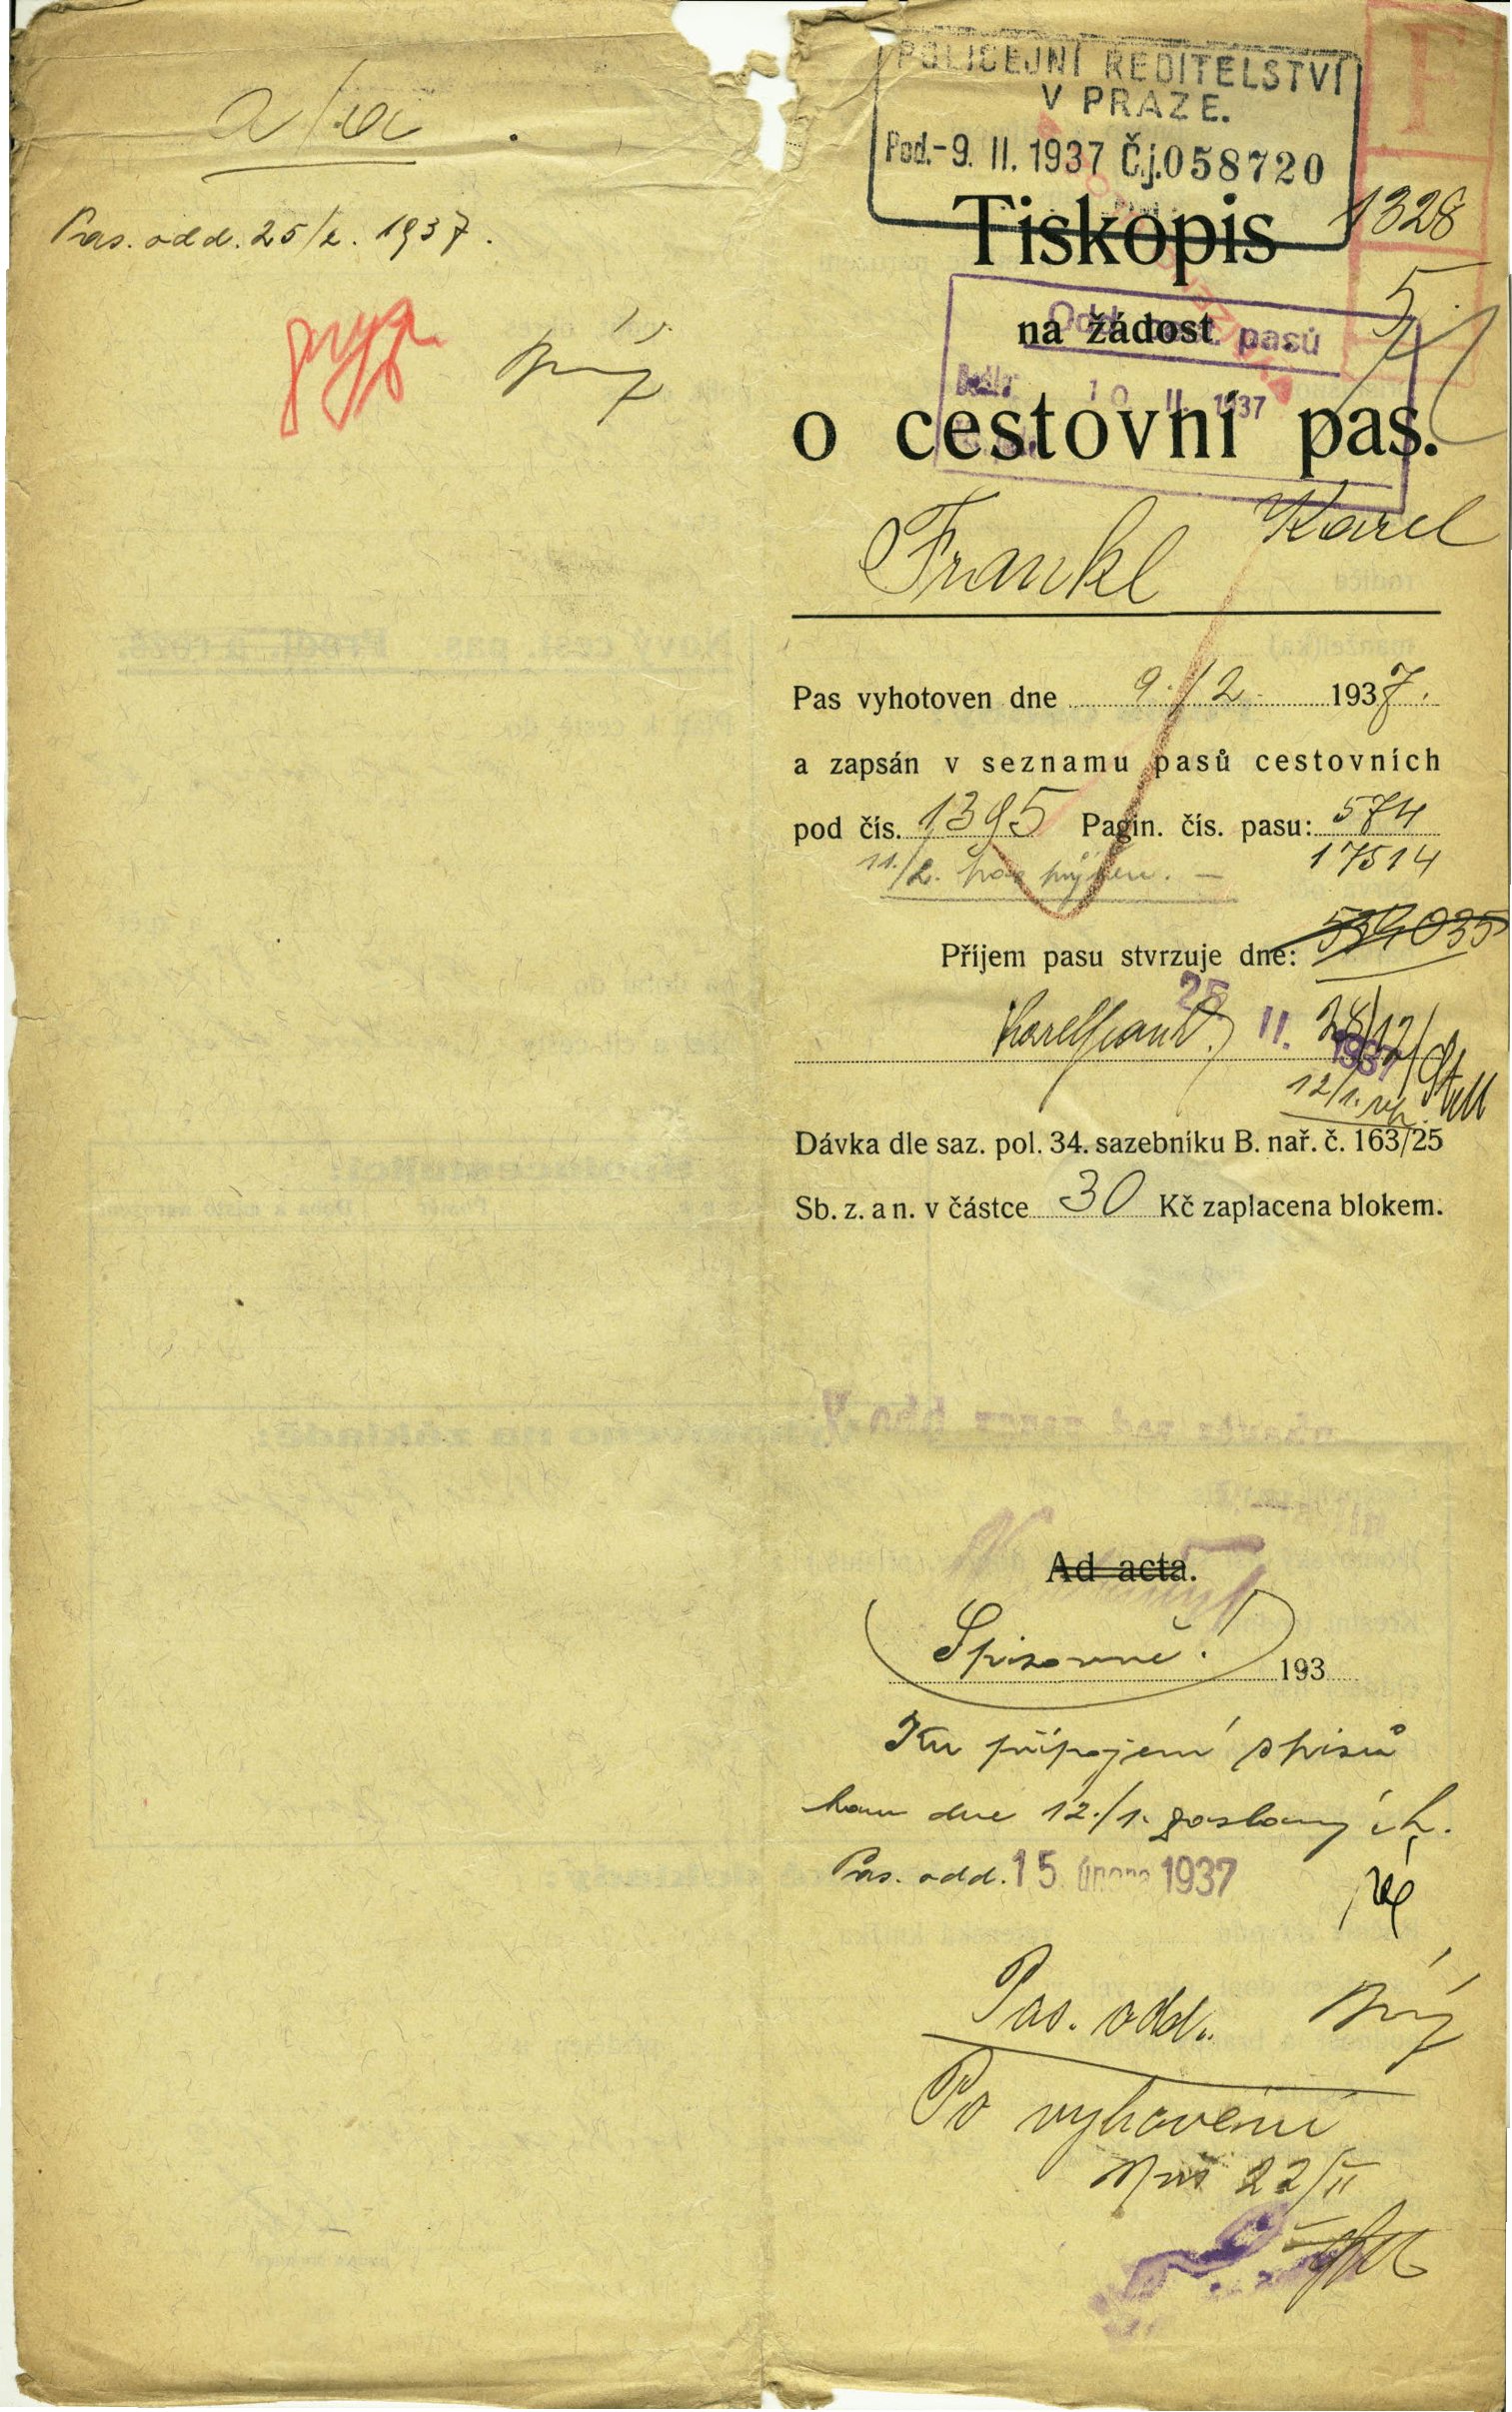 a/a
Pas. odd. 25/2. 1937.
POLICEJNÍ ŘEDITELSTVÍ
V PRAZE.
Pod.-9. II. 1937 Č.j. 058720
1328
5
Tiskopis
na žádost
Odd. pasů
10 II. 1937
o cestovní pas.
Frankl Karel
Pas vyhotoven dne 9./2. 1937.
a zapsán v seznamu pasů cestovních
pod čís. 1395 Pagin. čís. pasu: 574
17514
11./2.
534035
Příjem pasu stvrzuje dne:
25. II. 1937
28/12
12/1.
Dávka dle saz. pol. 34. sazebníku B. nař. č. 163/25
Sb. z. a n. v částce 30 Kč zaplacena blokem.
Ad acta.
Spisovně! 193
Ku připojení spisů
tam dne 12./1. zaslaných.
Pas. odd. 15. února 1937
Pas. odd.
Po vyhovění
22/II